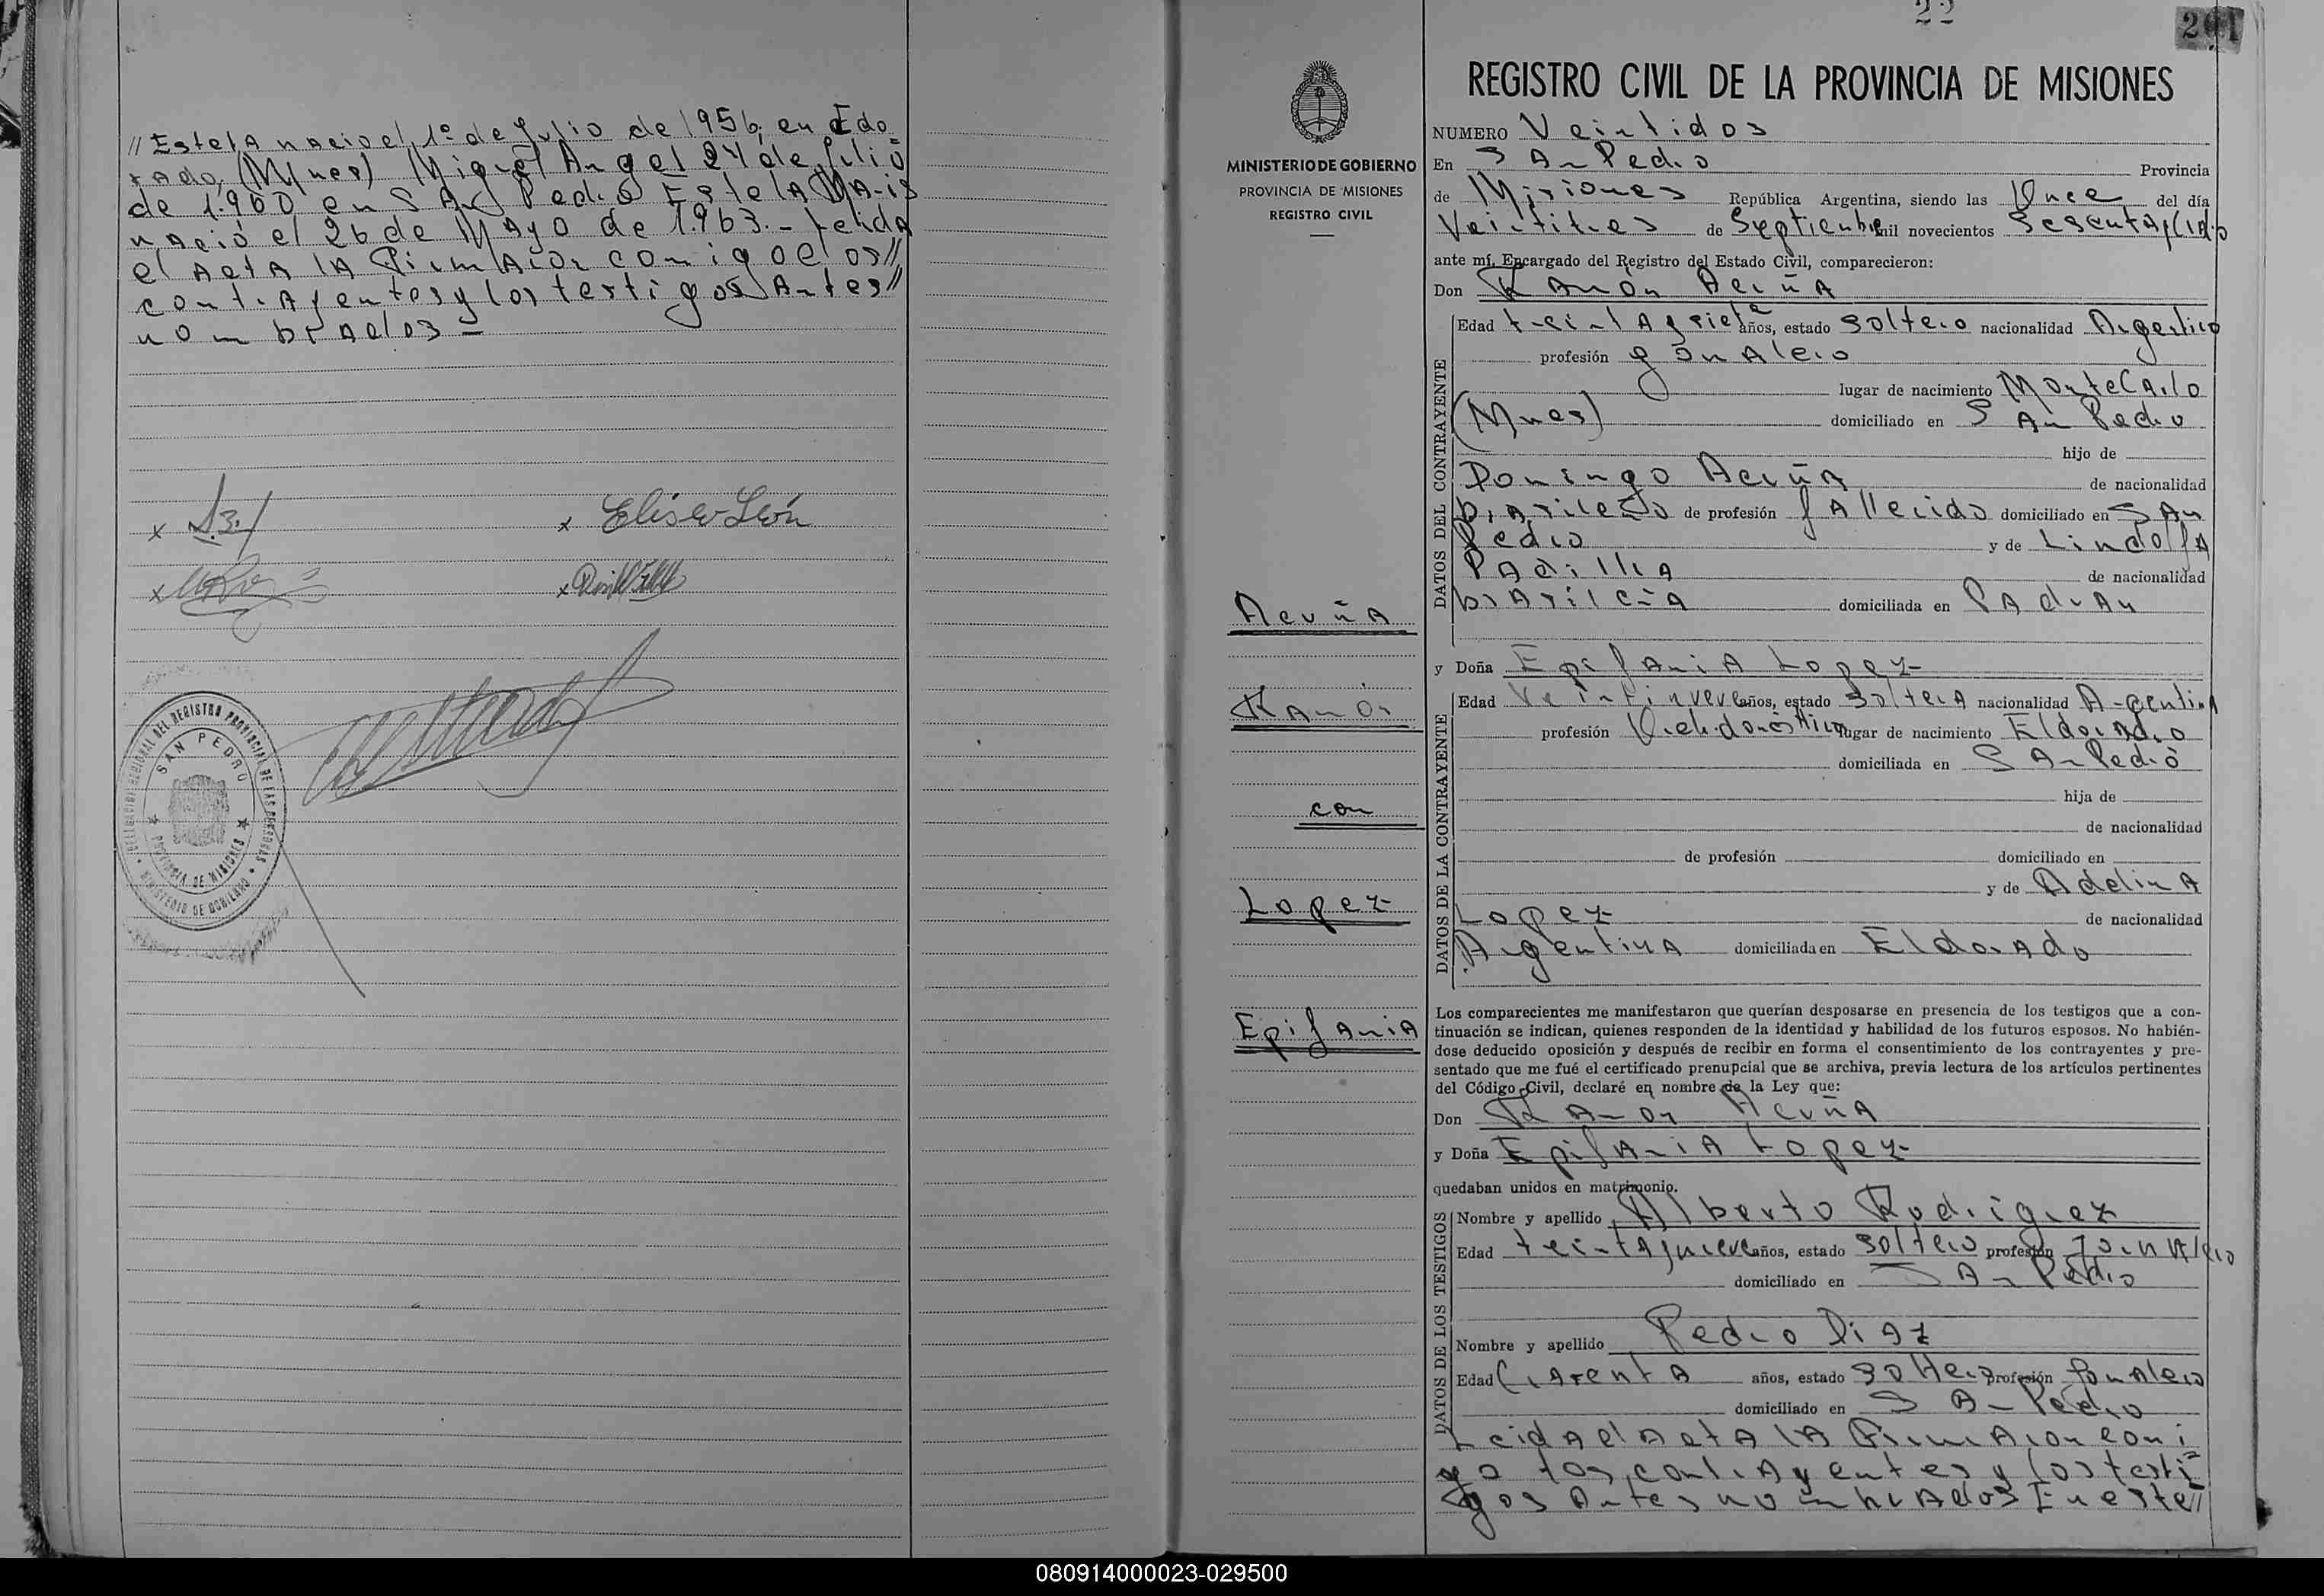 // Estela nacio el 1º de Julio de 1956, en Eldo
rado, (Mnes) Miguel Angel 24 de Julio
de 1.960 en San Pedro Estela Maris
nació el 26 de Mayo de 1.963.- Leida
el acta la firmaron conmigo los//
contrayentes y los testigos antes//
nombrados =
x
x Eliseo León
x
x
DELEGACION REGIONAL DEL REGISTRO PROVINCIAL DE LAS PERSONAS
SAN PEDRO
PROVINCIA DE MISIONES
MINISTERIO DE GOBIERNO
MINISTERIO DE GOBIERNO
PROVINCIA DE MISIONES
REGISTRO CIVIL
Acuña
Ramón
con
Lopez
Epifania
22
201
REGISTRO CIVIL DE LA PROVINCIA DE MISIONES
NUMERO Veintidos
En San Pedro Provincia
de Misiones República Argentina, siendo las Once del día
Veintitres de Septiembre mil novecientos
ante mí, Encargado del Registro del Estado Civil, comparecieron:
Don Ramón Acuña
Edad treintaysiete años, estado soltero nacionalidad Argentino
profesión jornalero
lugar de nacimiento MonteCarlo
(Mnes) domiciliado en San Pedro
hijo de
Domingo Acuña de nacionalidad
brasileño de profesión fallecido domiciliado en San
Pedro y de Lindolfa
Padilla de nacionalidad
brasileña domiciliada en
y Doña Epifania Lopez
Edad Veintinueve años, estado soltera nacionalidad Argentina
profesión Queh.domésticos lugar de nacimiento Eldorado
domiciliada en San Pedro
hija de
de nacionalidad
de profesión domiciliado en
y de Adelina
Lopez de nacionalidad
Argentina domiciliada en Eldorado
Los comparecientes me manifestaron que querían desposarse en presencia de los testigos que a con-
tinuación se indican, quienes responden de la identidad y habilidad de los futuros esposos. No habién-
dose deducido oposición y después de recibir en forma el consentimiento de los contrayentes y pre-
sentado que me fué el certificado prenupcial que se archiva, previa lectura de los artículos pertinentes
del Código Civil, declaré en nombre de la Ley que:
Don Ramón Acuña
y Doña Epifania Lopez
quedaban unidos en matrimonio.
Nombre y apellido Alberto Rodriguez
Edad treintaynueve años, estado soltero profesión Jornalero
domiciliado en San Pedro
Nombre y apellido Pedro Diaz
Edad Cuarenta años, estado soltero profesión Jornalero
domiciliado en San Pedro
Leida el acta la firmaron conmi
go los contrayentes y los testi=
gos antes nombrados En este//
DATOS DEL CONTRAYENTE
DATOS DE LA CONTRAYENTE
DATOS DE LOS TESTIGOS
080914000023-029500